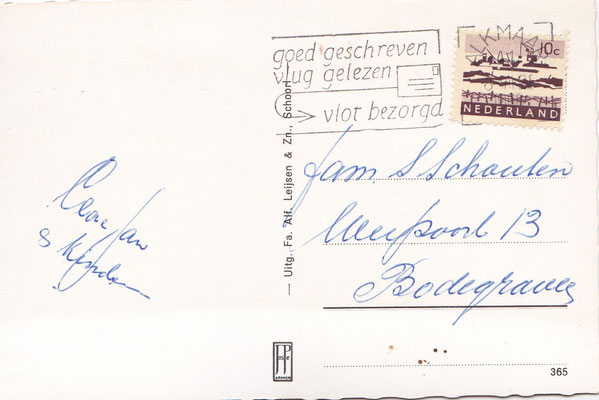 goed geschreven
vlug gelezen
vlot bezorgd
KMAA
10c
NEDERLAND
Fam. S Schouten
13
Bodegraven
Jan
&
— Uitg. Fa. Alf. Leijsen & Zn., Schoorl
JosPé
ARNHEM
365